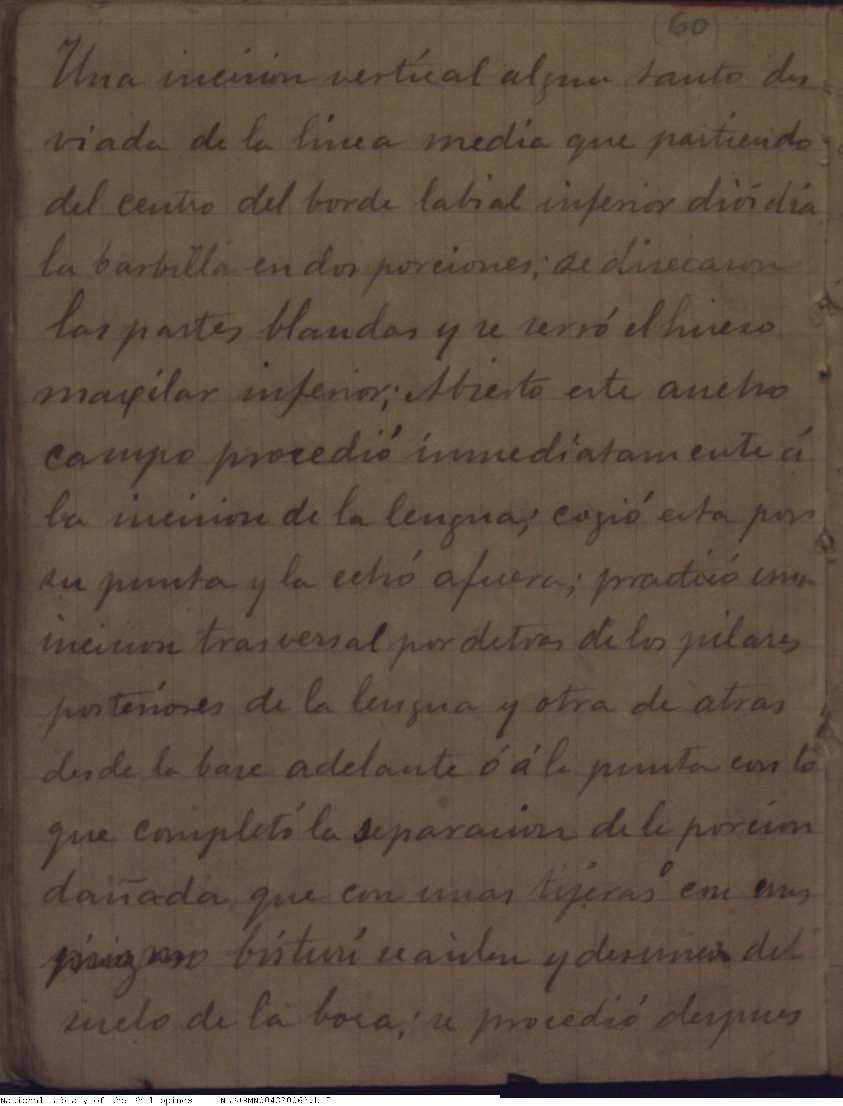 (60)
Una incision vertical algun tanto des
viada de la línea media que partiendo
del centro del borde labial inferior dividía
la barbilla en dos porciones; se disecaron
las partes blandas y se serró el hueso
maxilar inferior; Abierto este ancho
campo procedió inmediatamente á
la incision de la lengua; cogió esta por
su punta y la echó afuera; practicó una
incision trasversal por detras de los pilares
posteriores de la lengua y otra de atras
desde la base adelante ó á la punta con lo
que completó la separacion de la porcion
dañada que con unas tijeras ó con
bisturí se aislan y desunen del
suelo de la boca; se procedió despues
National Library of the Philippines